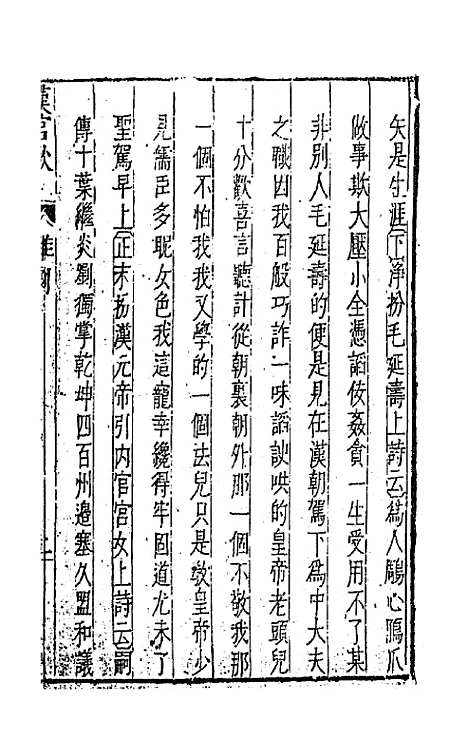 矢是生涯下淨扮毛延壽上詩云爲人鵰心鴈爪
做事欺大壓小全憑謟佞姦貪一生受用不了某
非別人毛延壽的便是見在漢朝駕下爲中大夫
之職因我百般巧詐一味謟諛哄的皇帝老頭兒
十分歡喜言聽計從朝裏朝外那一個不敬我那
一個不怕我我又學的一個法兒只是敎皇帝少
見儒臣多昵女色我這寵幸纔得牢固道尤未了
聖駕早上正末扮漢元帝引內官宮女上詩云嗣
傳十葉繼炎劉獨掌乾坤四百州邊塞久盟和議
漢宮秋
雜劇
二